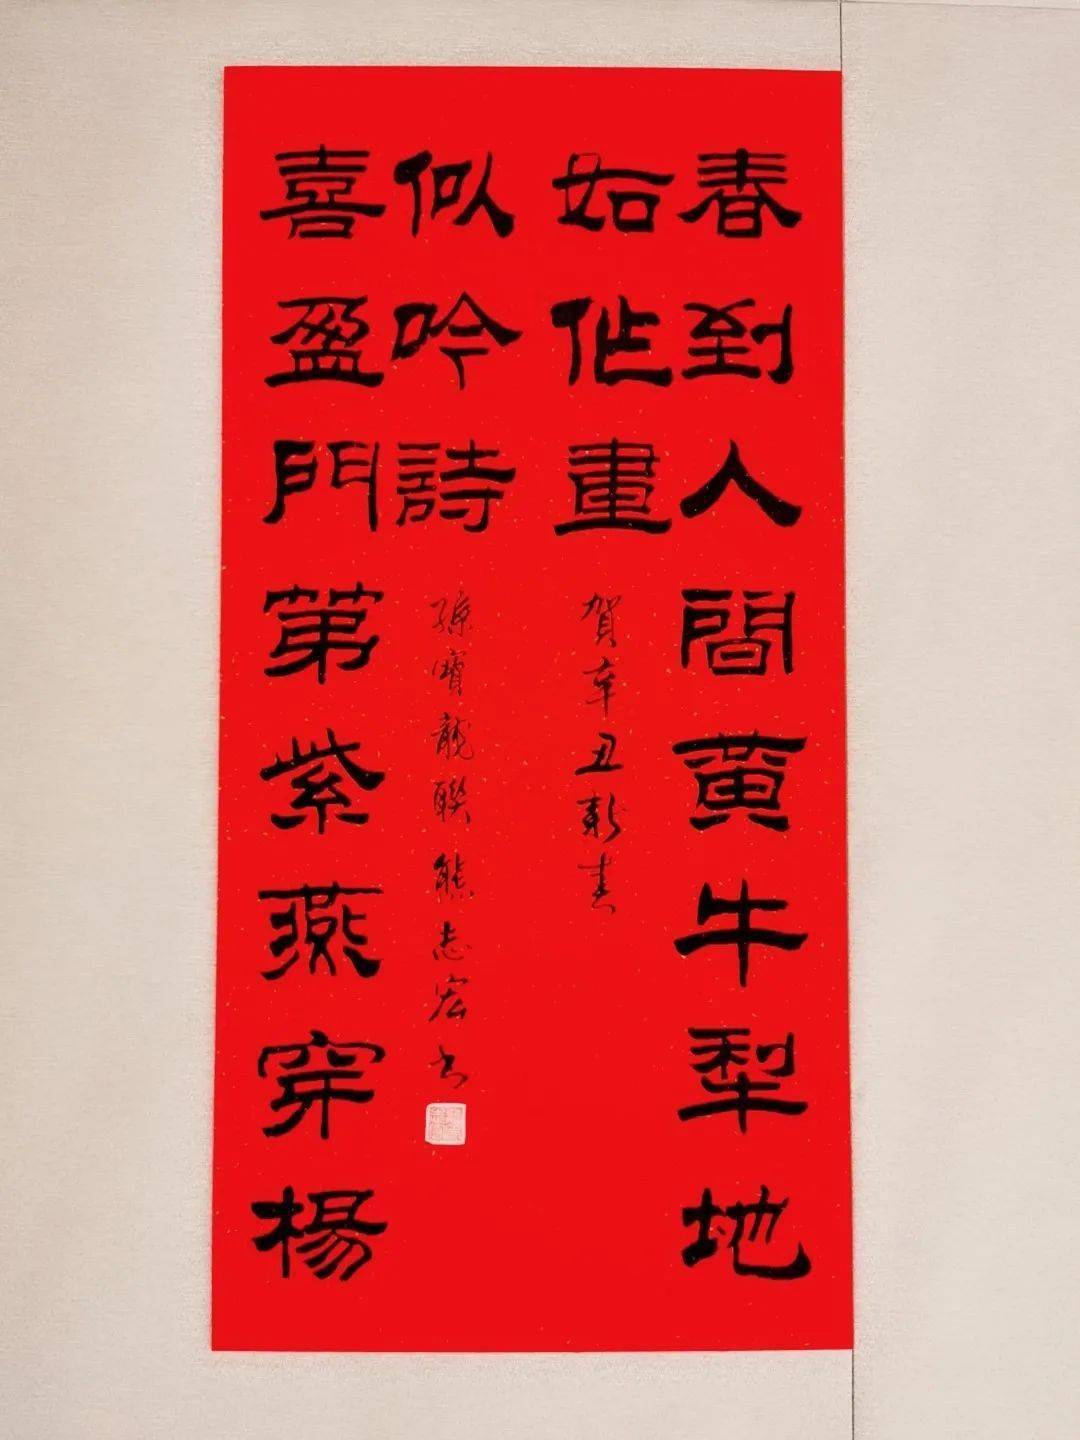 春到人間黄牛犁地
如作畫
賀辛丑新春
喜盈門第紫燕穿楊
似吟詩
孫寶龍聯熊志宏书